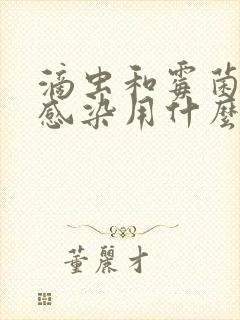 滴虫和霉菌
感染用什麽
董麗才